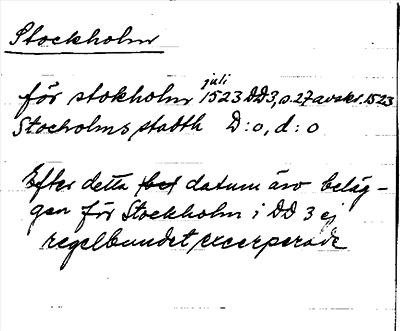 Stockholm
juli
för stokholm 1523 DD3, s. 27 avskr. 1523
Stocholms stadth D:o, d:o
Efter detta bel datum äro beläg-
gen för Stockholm i DD 3 ej
regelbundet excerperade